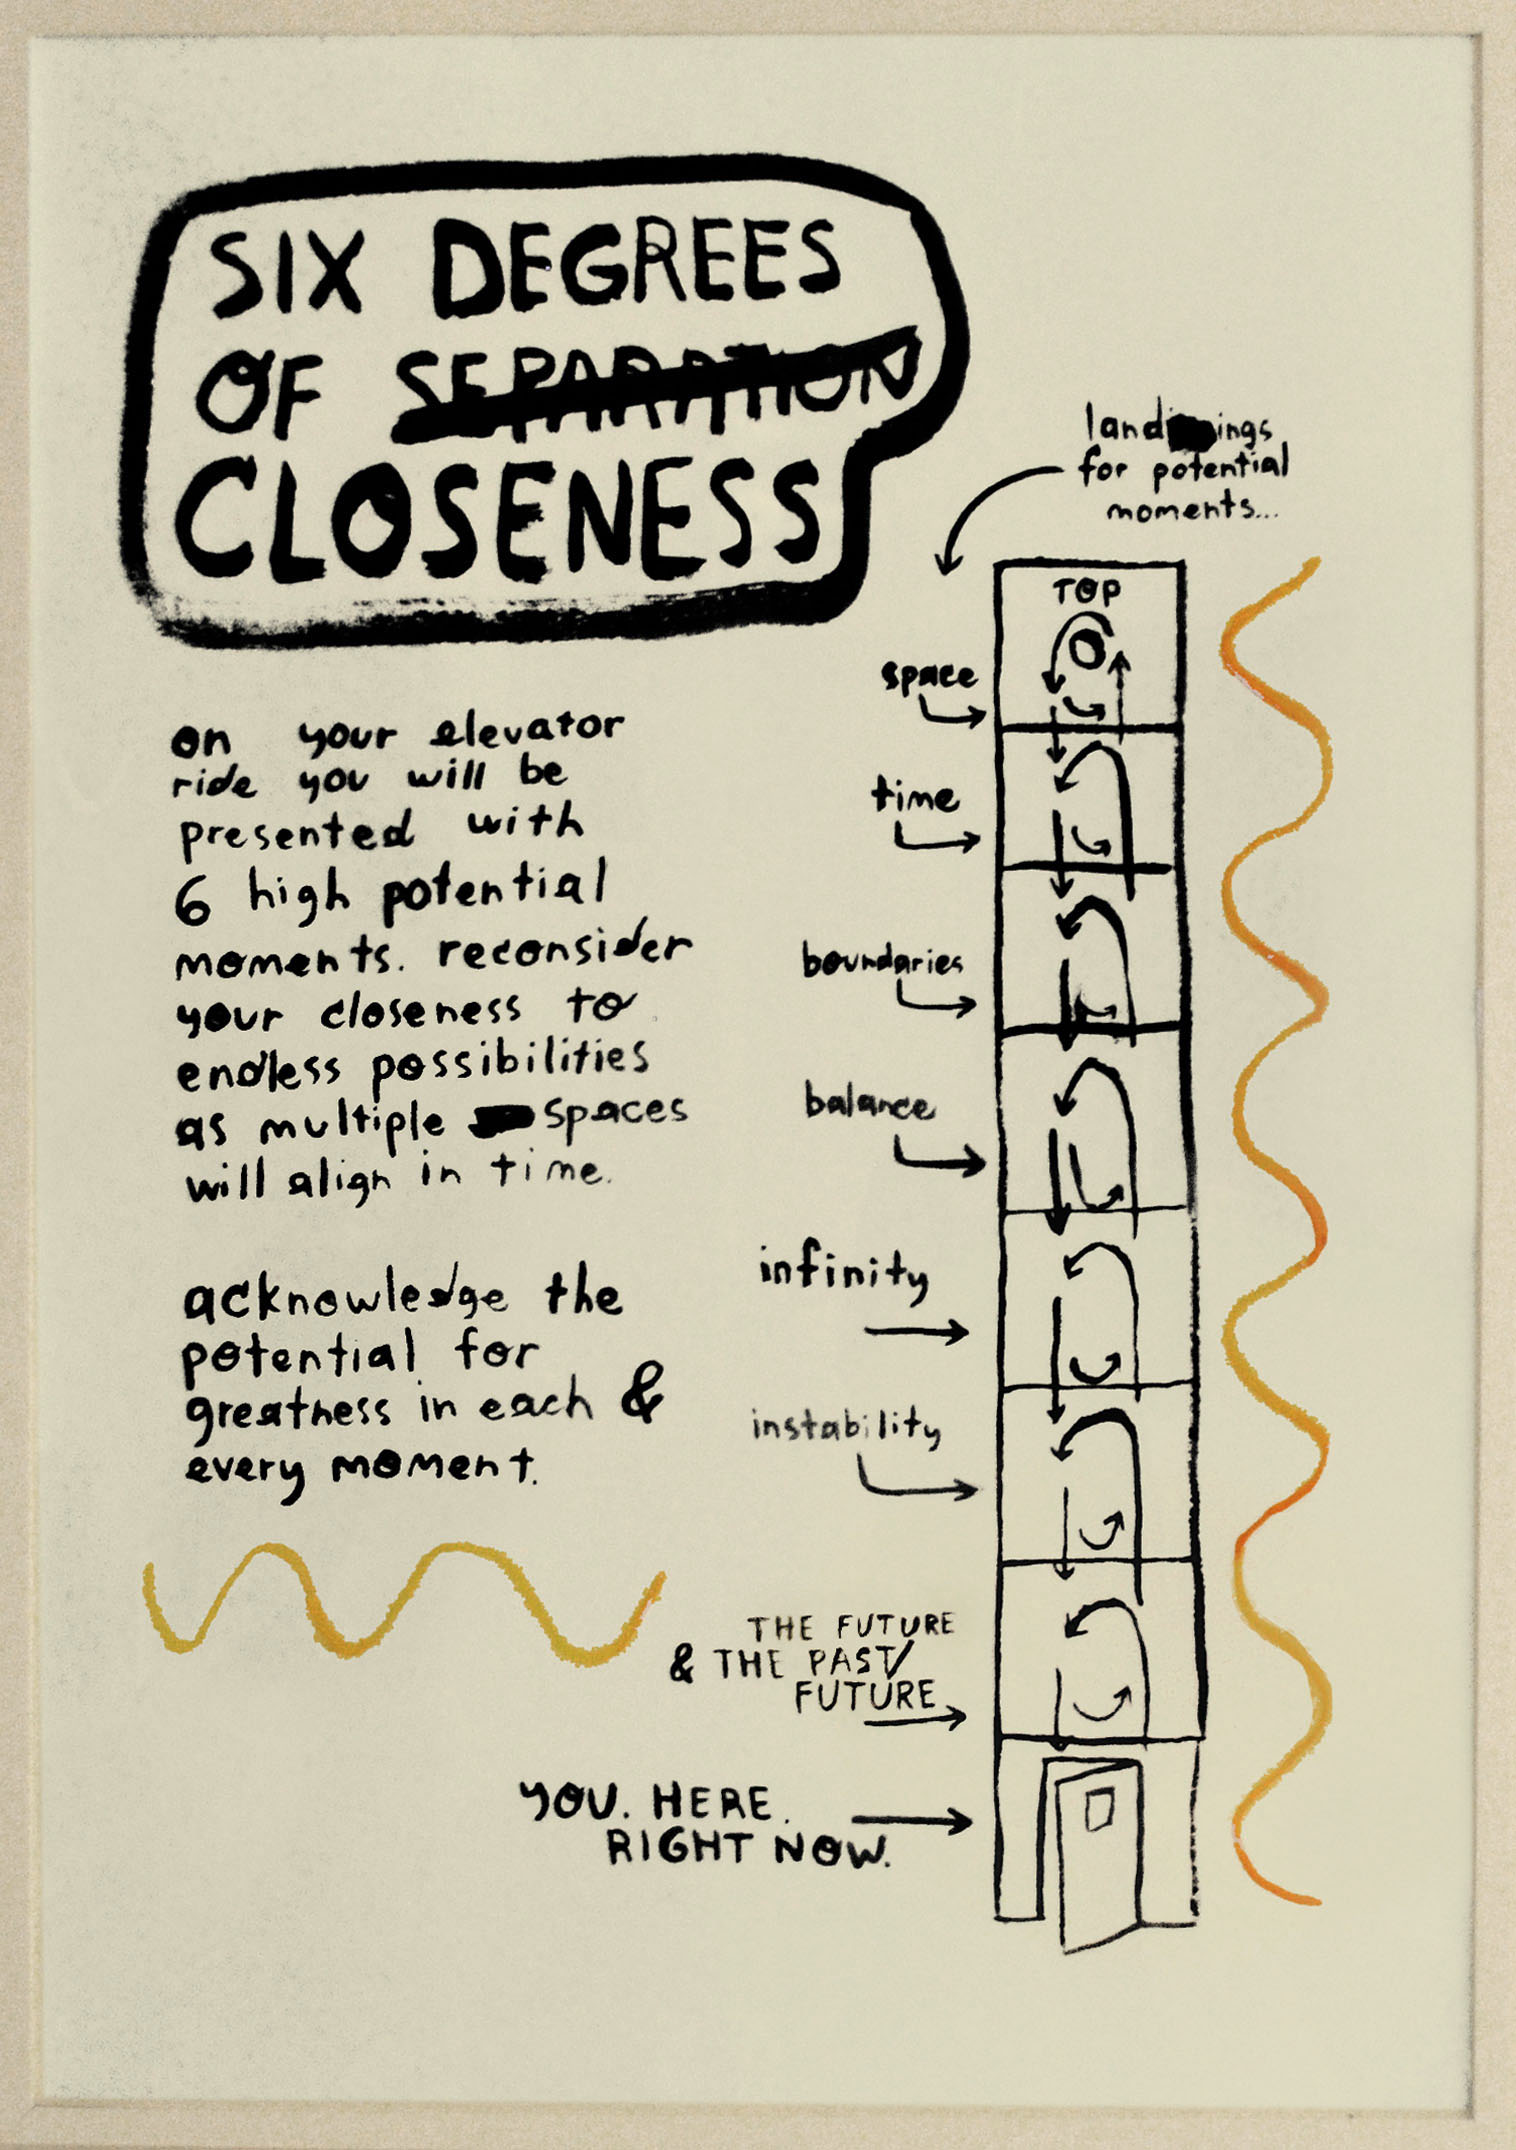 SIX DEGREES
OF SEPARATION
CLOSENESS
landings
for potential
moments...
on your elevator
ride you will be
presented with
6 high potential
moments. reconsider
your closeness to
endless possibilities
as multiple spaces
will align in time.
acknowledge the
potential for
greatness in each &
every moment.
TOP
space
time
boundaries
balance
infinity
instability
THE FUTURE
& THE PAST/
FUTURE
YOU. HERE.
RIGHT NOW.